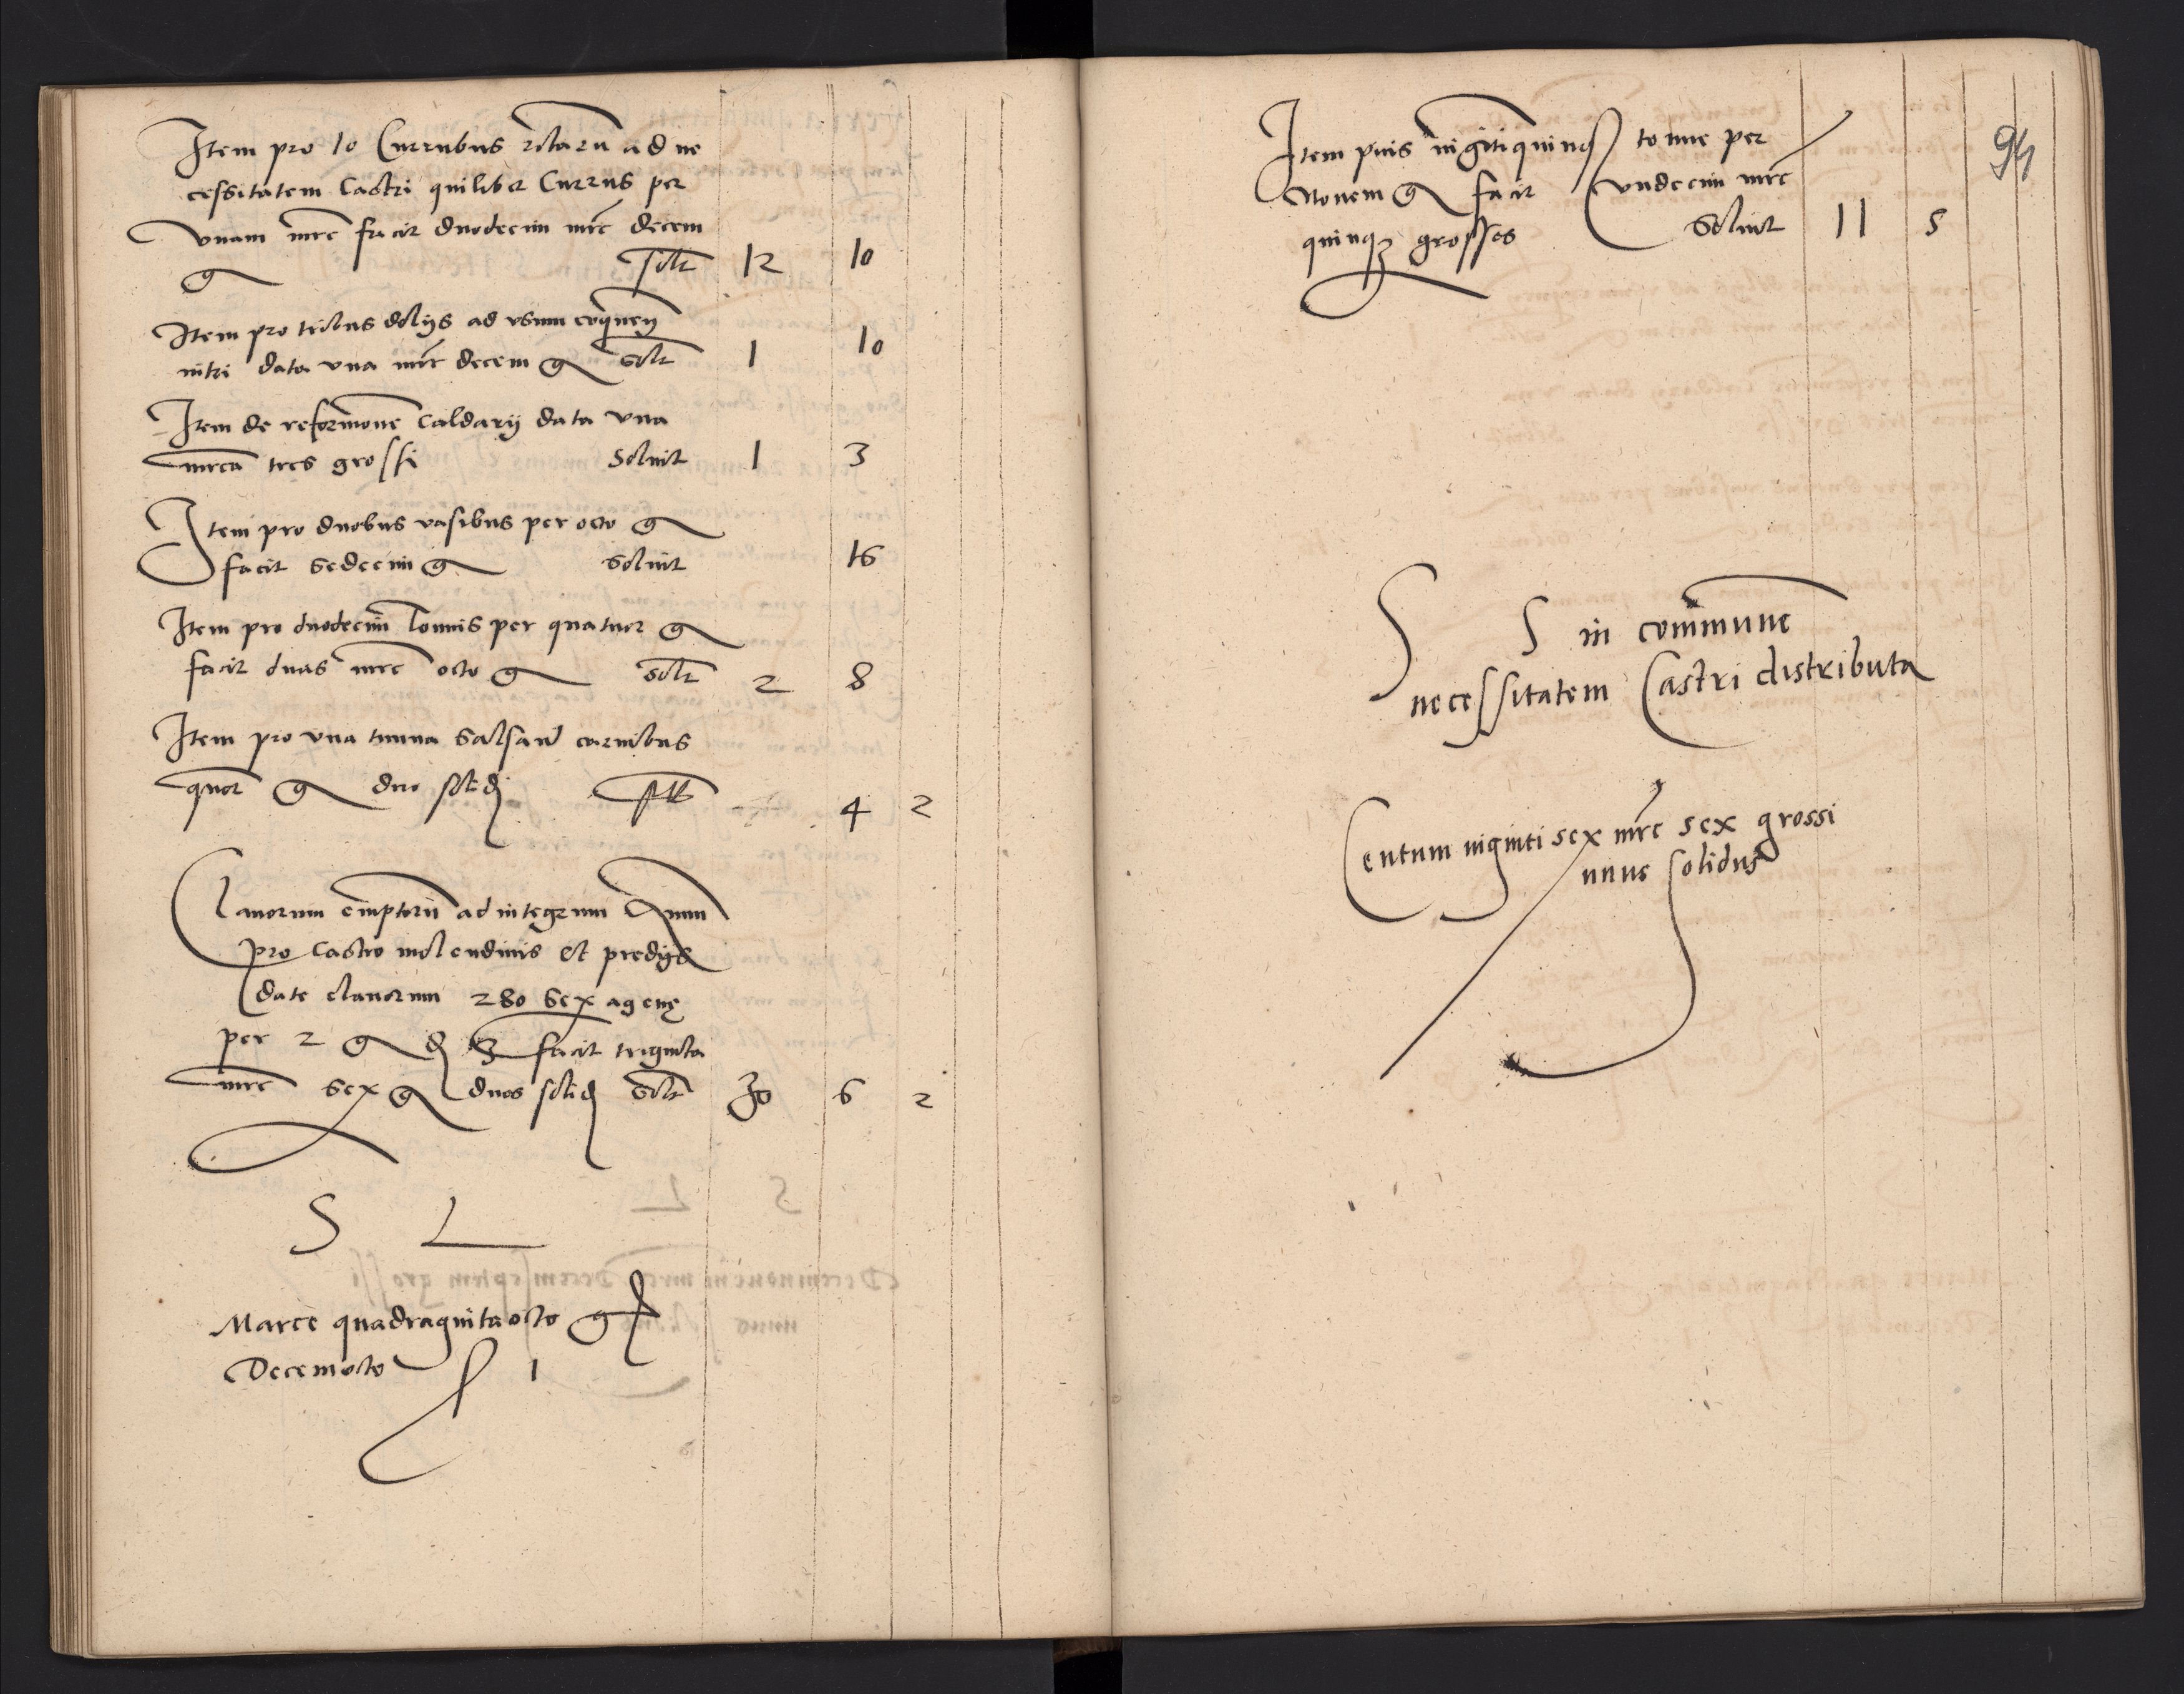 Item pro 10 Curribus rotarū ad ne
cessitatem Castri quilibet Currus per
vnam mrc facit duodecim mrc decem
g solt 12 10
Item pro tribus dolijs ad vsum
nitri data vna mrc decem g solt 1 10
Item de reformone Caldarij data vna
mrca tres grossi Soluit 1 3
Item pro duobus vasibus per octo g
facit sedecim g soluit 16
Item pro duodecim Tonnis per quatuor g
facit duas mrc octo g solt 2 8
Item pro vna tunna salsand carnibus
quor g duo solid solt 4 2
Clauorum emptorū ad integrum Annū
pro Castro molendinis et predijs
date clauorum 280 sexagenę
per 2 g d 3 facit triginta
mrc sex g duos solid solt 30 6 2
S L
Marce quadraginta octo g
Decemocto S 1
94
Item puis vigitiquinqȝ tonne per
Nonem g facit vndecim mrc
quinqȝ grosses Soluit 11 5
S S in commune
necessitatem Castri distributa
Centum viginti sex mrc sex grossi
unus solidus